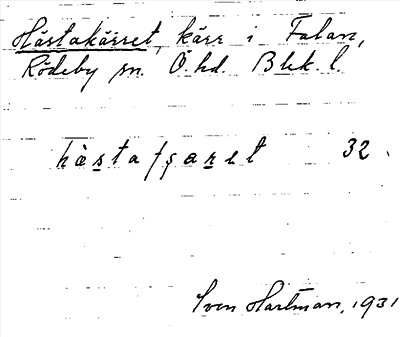 Hästakärret, kärr i Falan,
Rödeby sn. Ö. hd. Blek. l.
32.
Sven Hartman, 1931